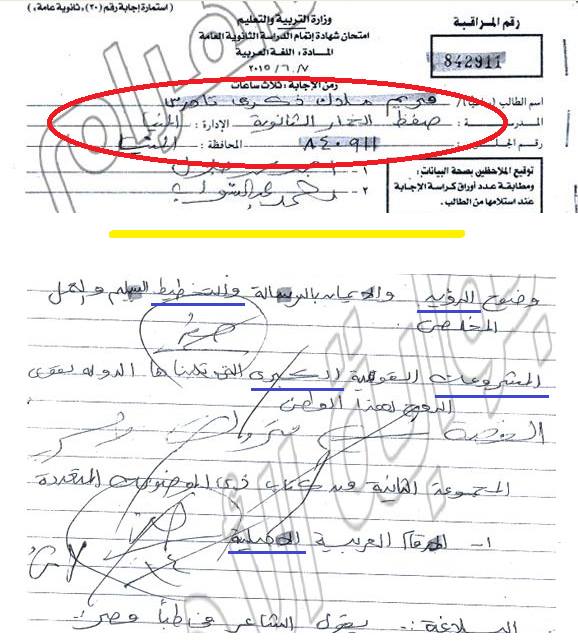 ( استمارة إجابة رقم (٢٠) ، ثانوية عامة )
رقم المراقبة
842911
وزارة التربية والتعليم
امتحان شهادة إتمام الدراسة الثانوية العامة
المــادة : اللغة العربية
٢٠١٥/٦/٧
زمن الإجابة : ثلاث ساعات
اسم الطالب (رباعيا) / مريم ملاك ذكرى تادرس
المدرســة : صفط الخمار الثانوية الإدارة : المنيا
رقم الجلــ : ٨٤٠٩١١ المحافظة : المنيا
توقيع الملاحظين بصحة البيانات :
ومطابقة عدد أوراق كراسة الإجابة
عند استلامها من الطالب .
١ -
٢ - محمد عبد التواب
وضوح الرؤيه والايمان بالرسالة والتخطيط السليم والعمل
المخلص
المشروعات القومية الكبرى التى تتبناها الدوله بقوى
لهذا الوطن
المجموعة الثانية من كتاب ذى الموضوعات المتعددة
١- العربية الاصيلية
البلاغة :- يقول الشاعر مخاطباً مصر :